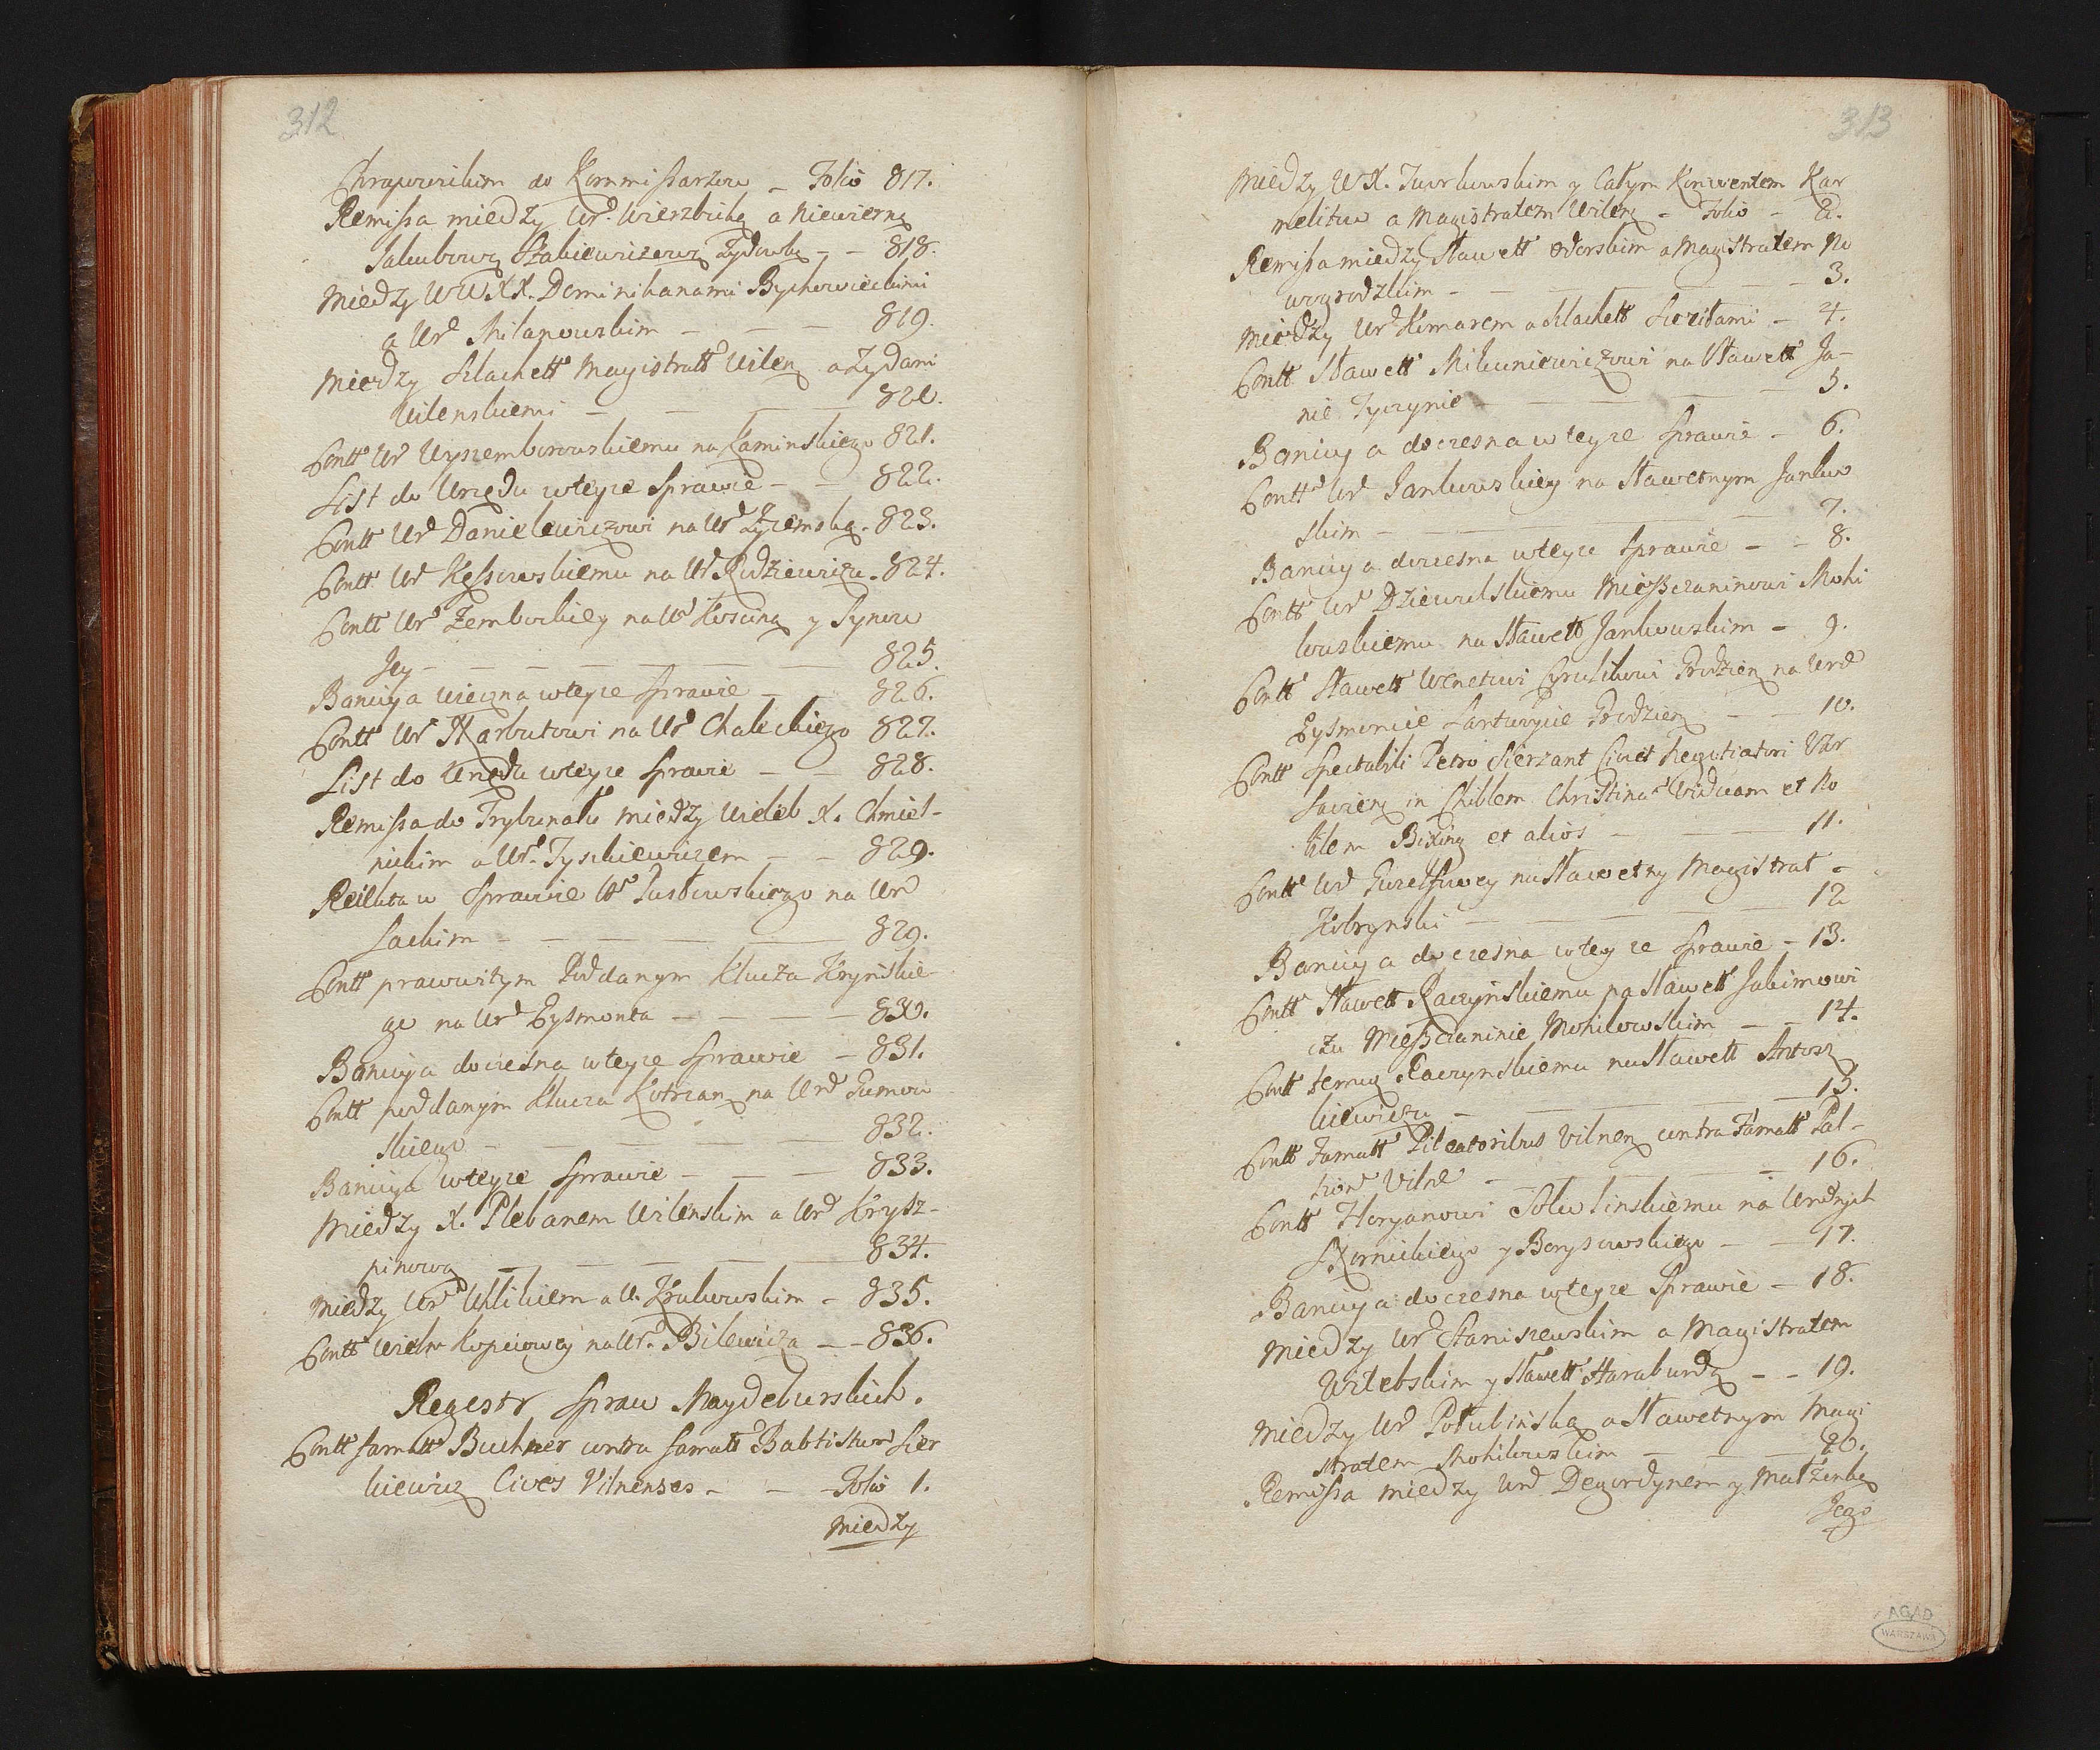 312
Chrapowickim do Kommissarzow _ Folio 817.
Remissa miedzy Urd. Wierzbicką a Niewierną
Jakubową Szakiewiczową Żydowką - - 818.
Między WWXX. Dominikanami Bychowieckimi
a Urd Milanowskim - - - 819.
Między Szlachett Magistratt Wilenz a Żydami
Wilenskiemi - - - 820.
Contt Urd Wyszemborowskiemu na Kaminskiego 821.
List do Urzędu wteyze Sprawie - - 822.
Contt Urd Danielewiczowi na Urd Zyzemską - 823.
Contt Urd Kęssowskiemu na Urd Rudziewiczu - 824.
Contt Urd Zembockiey na Urd Koscinę y Synow
Jey - - - - - - 825.
Banicya wieczna wteyze Sprawie - - 826.
Contt Urd Narbutowi na Urd Chaleckiego 827.
List do Urzędu wteyze Sprawie - - 828.
Remissa do Trybunału między Wieleb X. Chmiel-
nickim a Urd. Tyszkiewiczem - - 829.
Reillata w Sprawie Urd Pusłowskiego na Urd
Lackim - - - - 829.
Contt prawowitym Poddanym Klucza Krynskie-
go na Urd Eysmonta - - - - 830.
Banicya doczesna wteyze Sprawie - 831.
Contt poddanym Klucza Kotrzanz na Urd Gumow
skiego - - - - - 832.
Banicya wteyze Sprawie - - - 833.
Między X. Plebanem Wilenskim a Urd Krysz-
pinową - - - - - 834.
Między Urd Uklikiem a U. Krukowskim - 835.
Contt Wielm Kopciowey na Urd. Bilewicza - - 836.
Regestr Spraw Maydeburskich.
Contt famatt Buchner contra famatt Babtistum Sier
kiewicz Cives Vilnenses - - Folio 1.
Między
313
Między WX. Tworkowskim y Całym Konwentem Kar
melitow a Magistratem Wilenz - Folio - 2.
Remissa między Sławett Odorskim a Magistratem No
wogrodzkim - - - - - 3.
Między Urd Komarem a Szlachett Scozitami - 4.
Contt Sławett Mikuniewiczowi na Sławett Ja-
nie Tyczynie - - - - 5.
Banicya doczesna w teyze Sprawie - 6.
Contt Urd Jankowskiey na Sławetnym Jankow
skim - - - - - 7.
Banicya doczesna wteyze Sprawie - - 8.
Contt Urd Dziewulskiemu Mieszczaninowi Mohi
lowskiemu na Sławett Jankowskim - 9.
Contt Sławett Wenetowi Cyrulikowi Grodzienz na Urd
Eysmoncie Lantwoycie Grodzienz - - 10.
Contt Spectabili Petro Sierzant Civi et Negotiatori Var
savienz in Chiblem Christinam Viduam et No
bilem Bixing et alios - - - 11.
Contt Urd Gurelsowey na Sławetny Magistrat -
Kobrynski - - - - - 12
Banicya doczesna wteyze Sprawie - 13.
Contt Sławett Raczynskiemu na Sławett Jakimowi
czu Mieszczaninie Mohilowskim - - 14.
Contt temuz Raczynskiemu na Sławett Antosz
kiewiczu - - - - 15.
Contt Famatt Pileatoribus Vilnenz contra Famatt Pal-
tionm Vilne - - - - 16.
Contt Floryanowi Sokolinskiemu na Urodnych
Skornickiego y Borysowskiego - - 17.
Banicya doczesna wteyze Sprawie - 18.
Między Urd Staniszewskim a Magistratem
Witebskim y Sławett Haraburdą - - 19.
Między Urd Połubińską a Sławetnym Magi
stratem Mohilowskim - - - 20.
Remissa między Urd Degordynem y Małżonką
Jego
AGAD
WARSZAWA